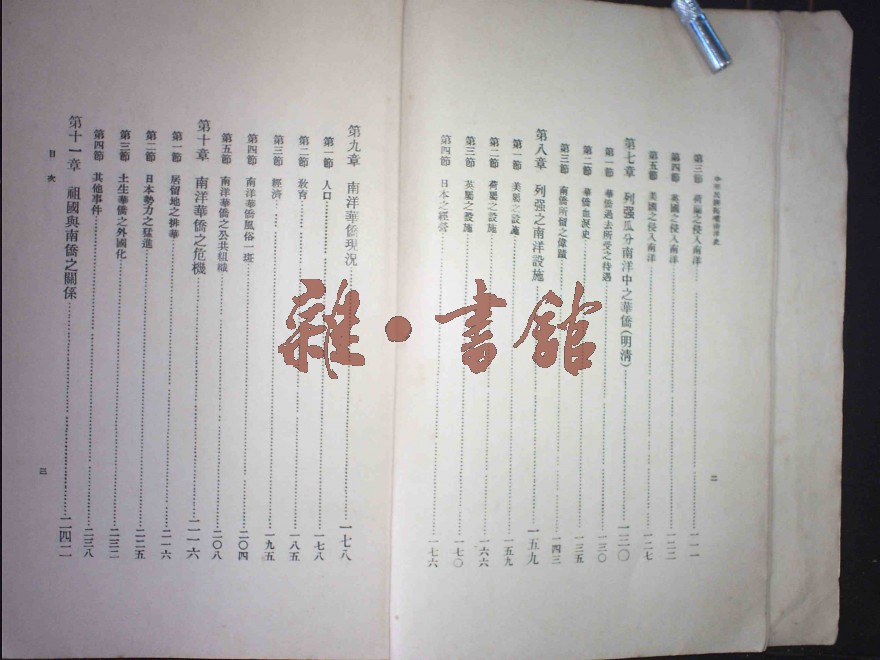 中華民族拓殖南洋史
第三節 荷蘭之侵入南洋……一一一
第四節 英國之侵入南洋……一二二
第五節 美國之侵入南洋……一二七
第七章 列强瓜分南洋中之華僑(明清)……一三〇
第一節 華僑過去所受之待遇……一三〇
第二節 華僑血淚史……一三五
第三節 南僑所留之偉蹟……一四三
第八章 列强之南洋設施……一五九
第一節 美屬之設施……一五九
第二節 荷屬之設施……一六六
第三節 英屬之設施……一七〇
第四節 日本之經營……一七六
二
第九章 南洋華僑現況……一七八
第一節 人口……一七八
第二節 教育……一八五
第三節 經濟……一九五
第四節 南洋華僑風俗一斑……二〇四
第五節 南洋華僑之公共組織……二〇八
第十章 南洋華僑之危機……二一六
第一節 居留地之排華……二一六
第二節 日本勢力之猛進……二二五
第三節 土生華僑之外國化……二三二
第四節 其他事件……二三八
第十一章 祖國與南僑之關係……二四二
目次
三
雜·書館